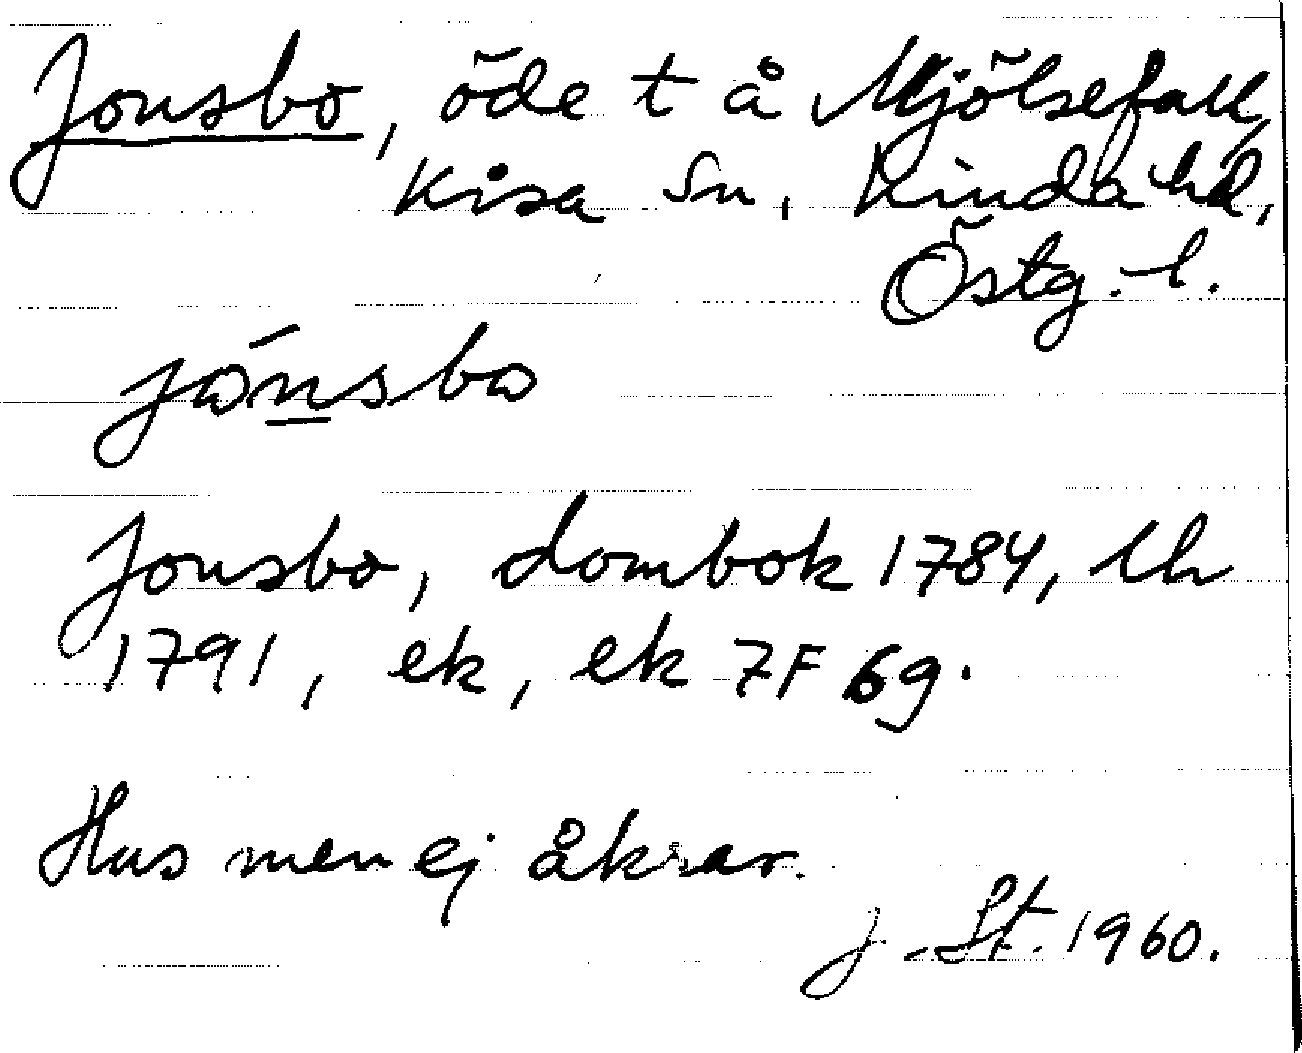 Jonsbo, öde t å Mjölsefall,
Kisa sn, Kinda hd,
Östg. l.
jónsbo
Jonsbo, dombok 1784, lh
1791, ek, ek 7F 6g.
Hus men ej åkrar.
J. St. 1960.